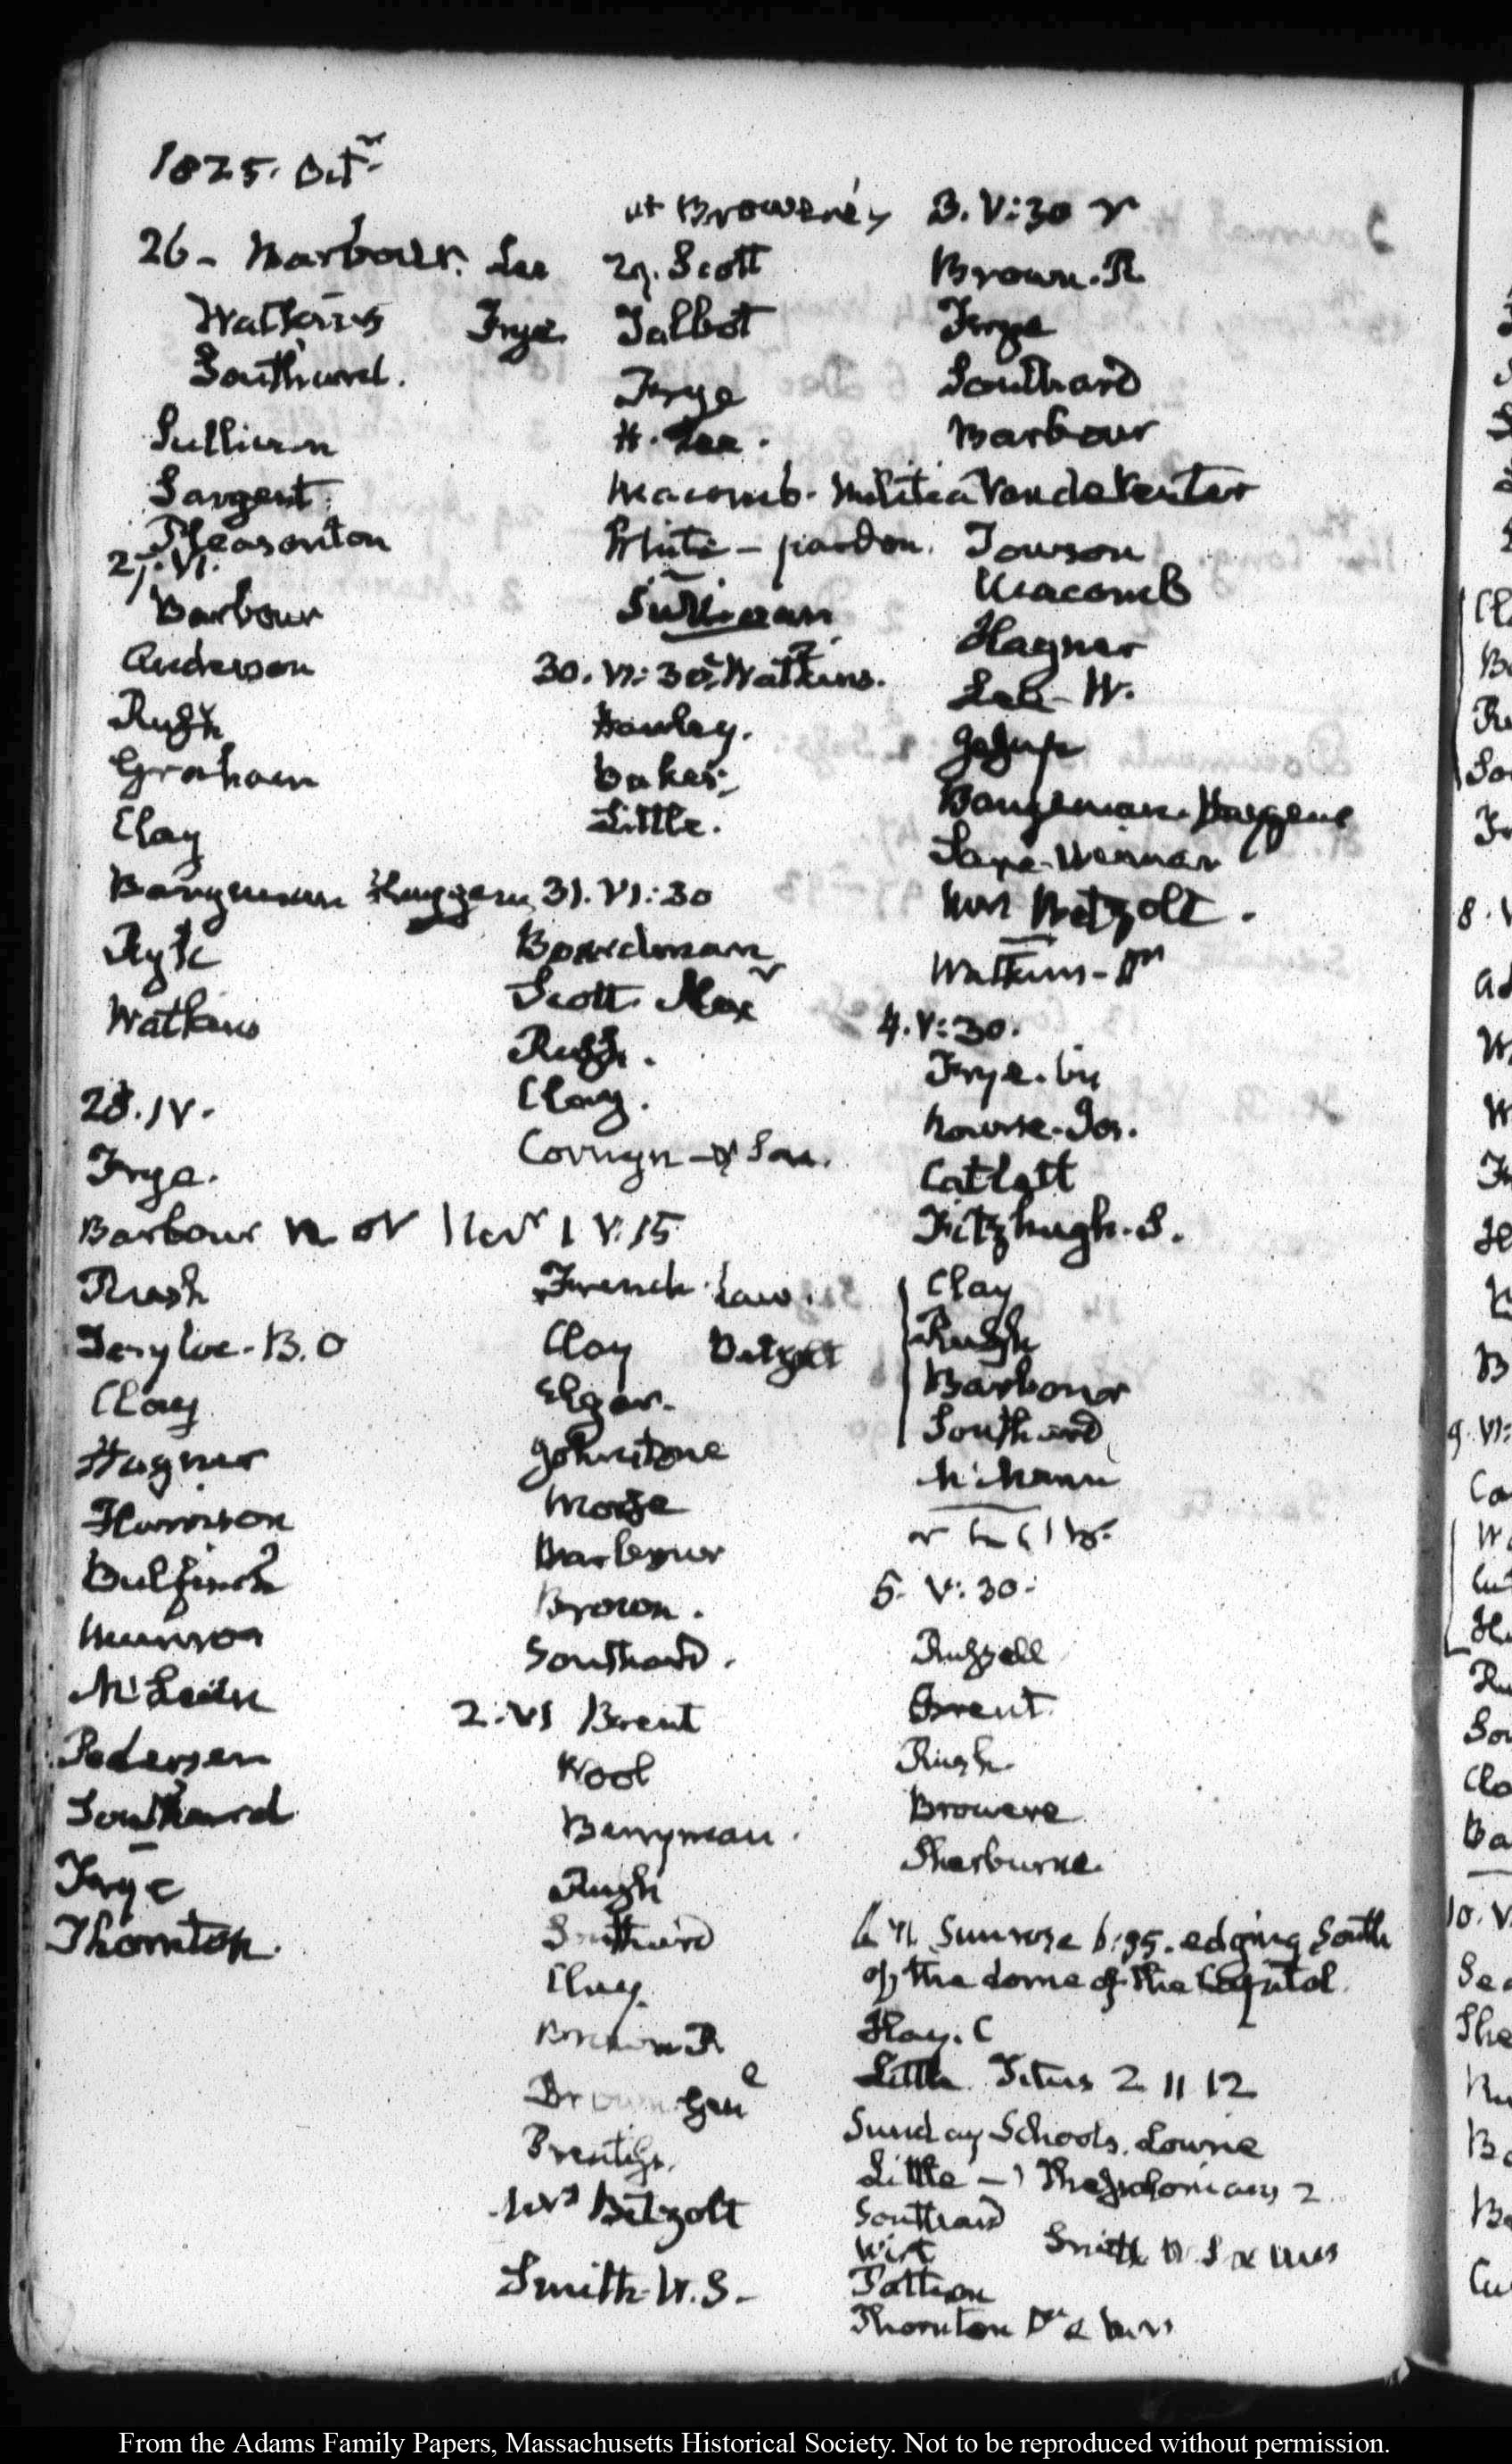 1825. Oct.r
26 - Barbour. Lee
Watkins Frye.
Southard.
Sullivan
Sargent.
Pleasonton
27. VI.
Barbour
Anderson
Rush
Graham
Clay
Bangeman Huygens
Rush
Watkins
28. IV.
Frye.
Barbour
Rush
Tayloe - B. O
Clay
Hagner
Harrison
Bulfinch
Munroe
McLean
Pedersen
Southard
Frye
Thornton.
at Browere's
29. Scott
Talbot
Frye
H. Lee.
Macomb - Militia
White - pardon.
Sullivan
30. VI: 30. Watkins.
Hawley.
Baker,
Little.
31. VI: 30
Boardman
Scott Alex.r
Rush.
Clay.
Novr 1 V. 15
French. law.
Clay Betzolt
Elgar.
Johnstone
Morse
Barbour
Brown.
Southard.
2. VI Brent
Wool
Berryman.
Rush
Southard
Clay
Brown R
Brown Gen
Prentiss.
Mrs Betzolt
Smith - W. S.
3. V: 30
Brown. R
Frye
Southard
Barbour
Vandeventer
Towson
Macomb
Hagner
Lee - W.
Jesup
Bangeman. Huygens
Saxe-Weimar
Von Betzolt.
Watkins - Dr
4. V: 30.
Frye. bu
Nourse. Jos.
Catlett
Fitzhugh. S.
Clay
Rush
Barbour
Southard
5. V: 30.
Russell
Brent.
Rush.
Browere
Sherburne.
6 VI. Sun rose 6:35. edging South
of the dome of the Capitol.
Hay. C
Little. Titus 2 11 12
Sunday Schools. Lowrie
Little - 1 Thessalonians 2.
Southard
Smith W. S & Mrs
Wirt
Thornton Dr & Mrs